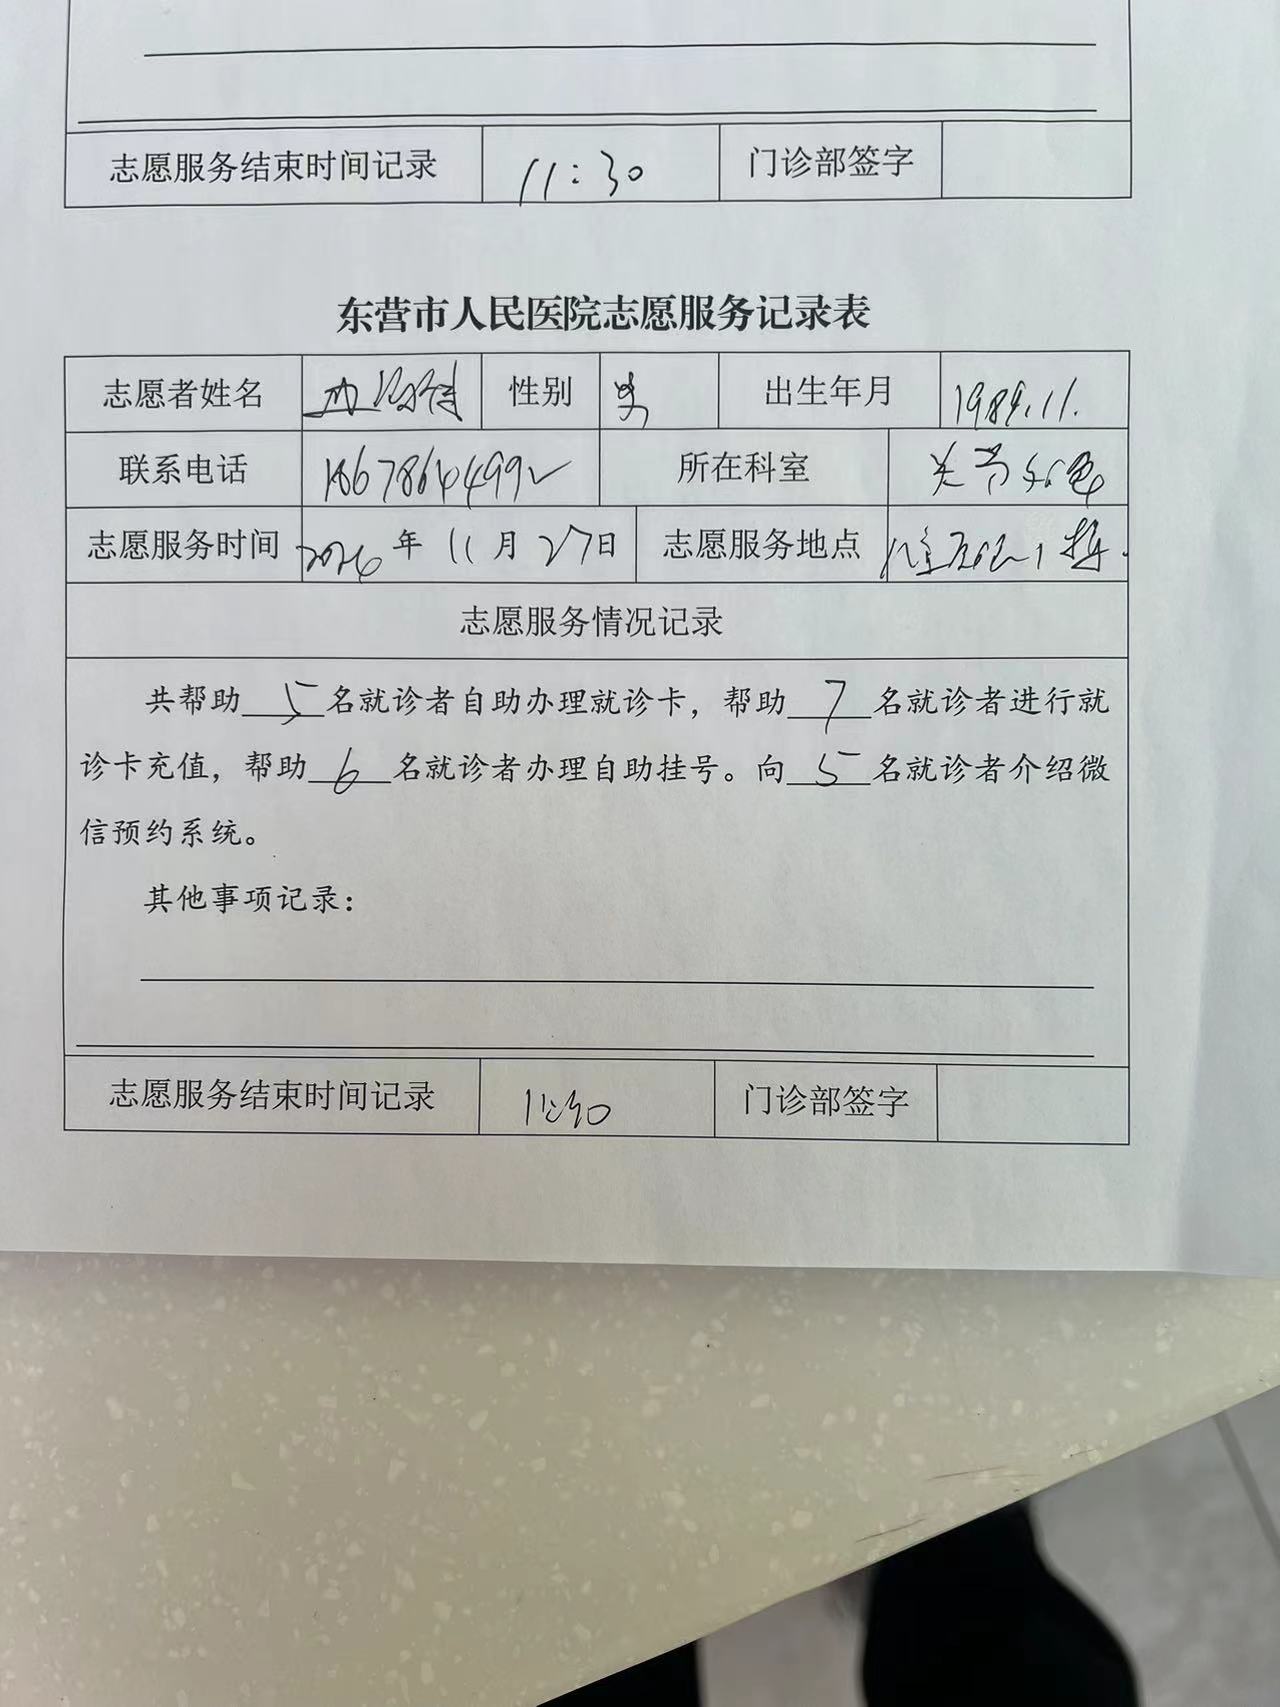 志愿服务结束时间记录 11:30 门诊部签字
东营市人民医院志愿服务记录表
志愿者姓名 性别 男 出生年月 1989.11.
联系电话 所在科室
志愿服务时间 年 11 月 27 日 志愿服务地点
志愿服务情况记录
共帮助 5 名就诊者自助办理就诊卡，帮助 7 名就诊者进行就
诊卡充值，帮助 6 名就诊者办理自助挂号。向 5 名就诊者介绍微
信预约系统。
其他事项记录：
志愿服务结束时间记录 11:30 门诊部签字